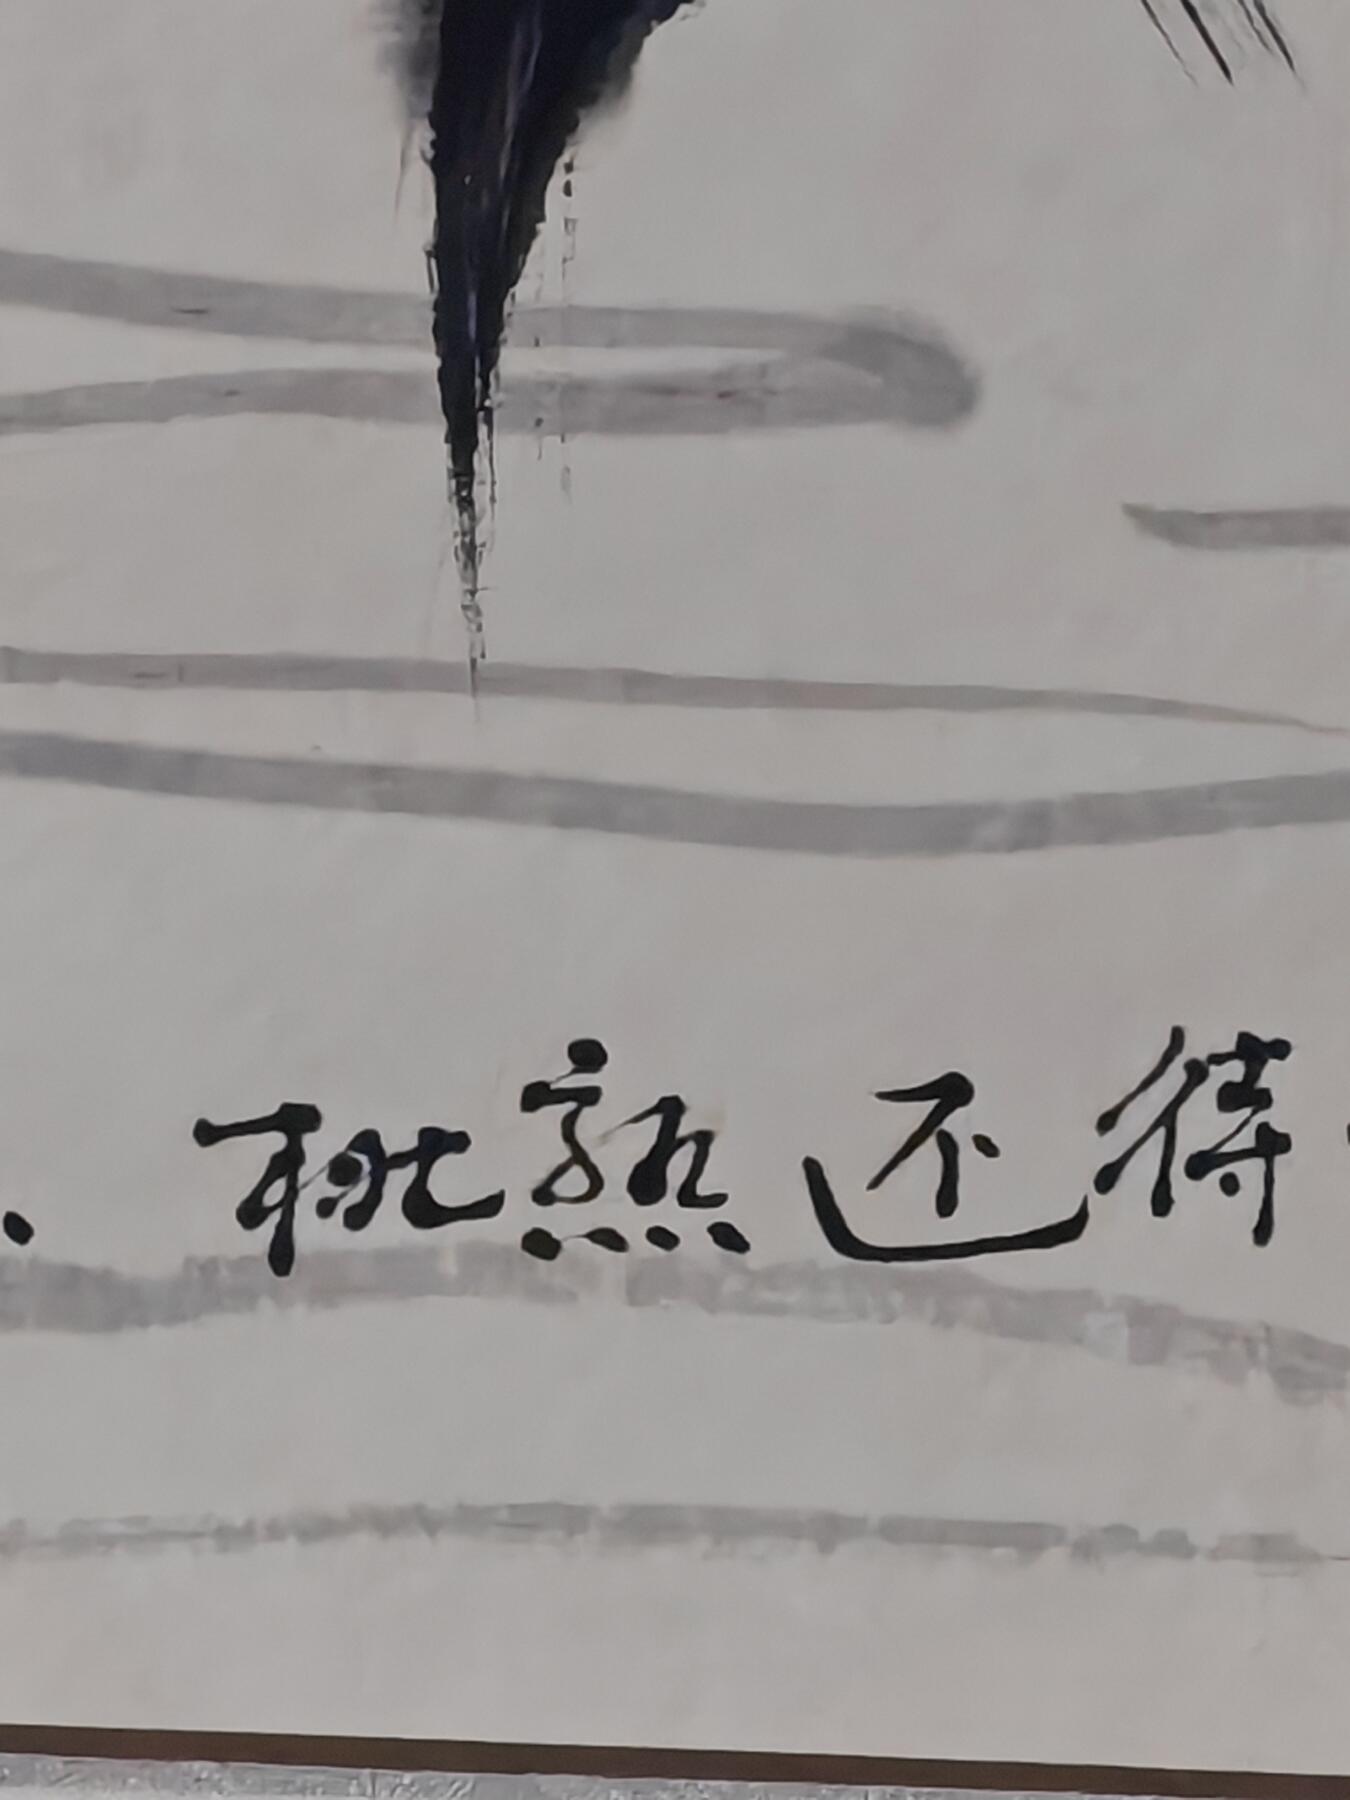 桃熟还待